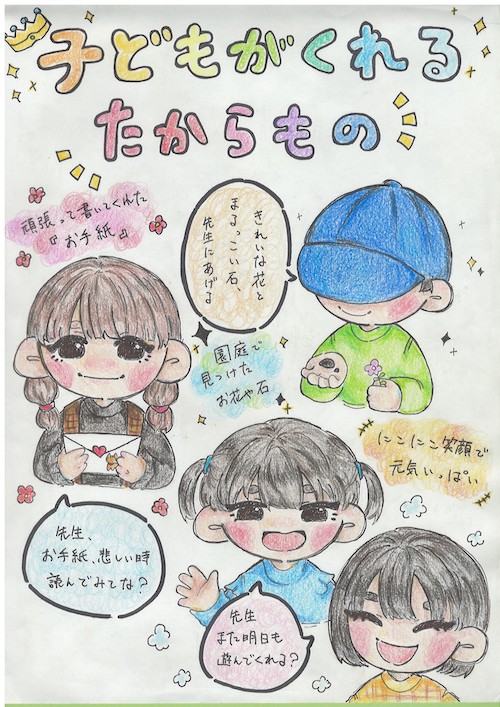 子どもがくれる
たからもの
頑張って書いてくれた
『お手紙』
きれいな花と
まるっこい石、
先生にあげる
園庭で
見つけた
お花や石
にこにこ笑顔で
元気いっぱい
先生、
お手紙、悲しい時
読んでみてな?
先生
また明日も
遊んでくれる?